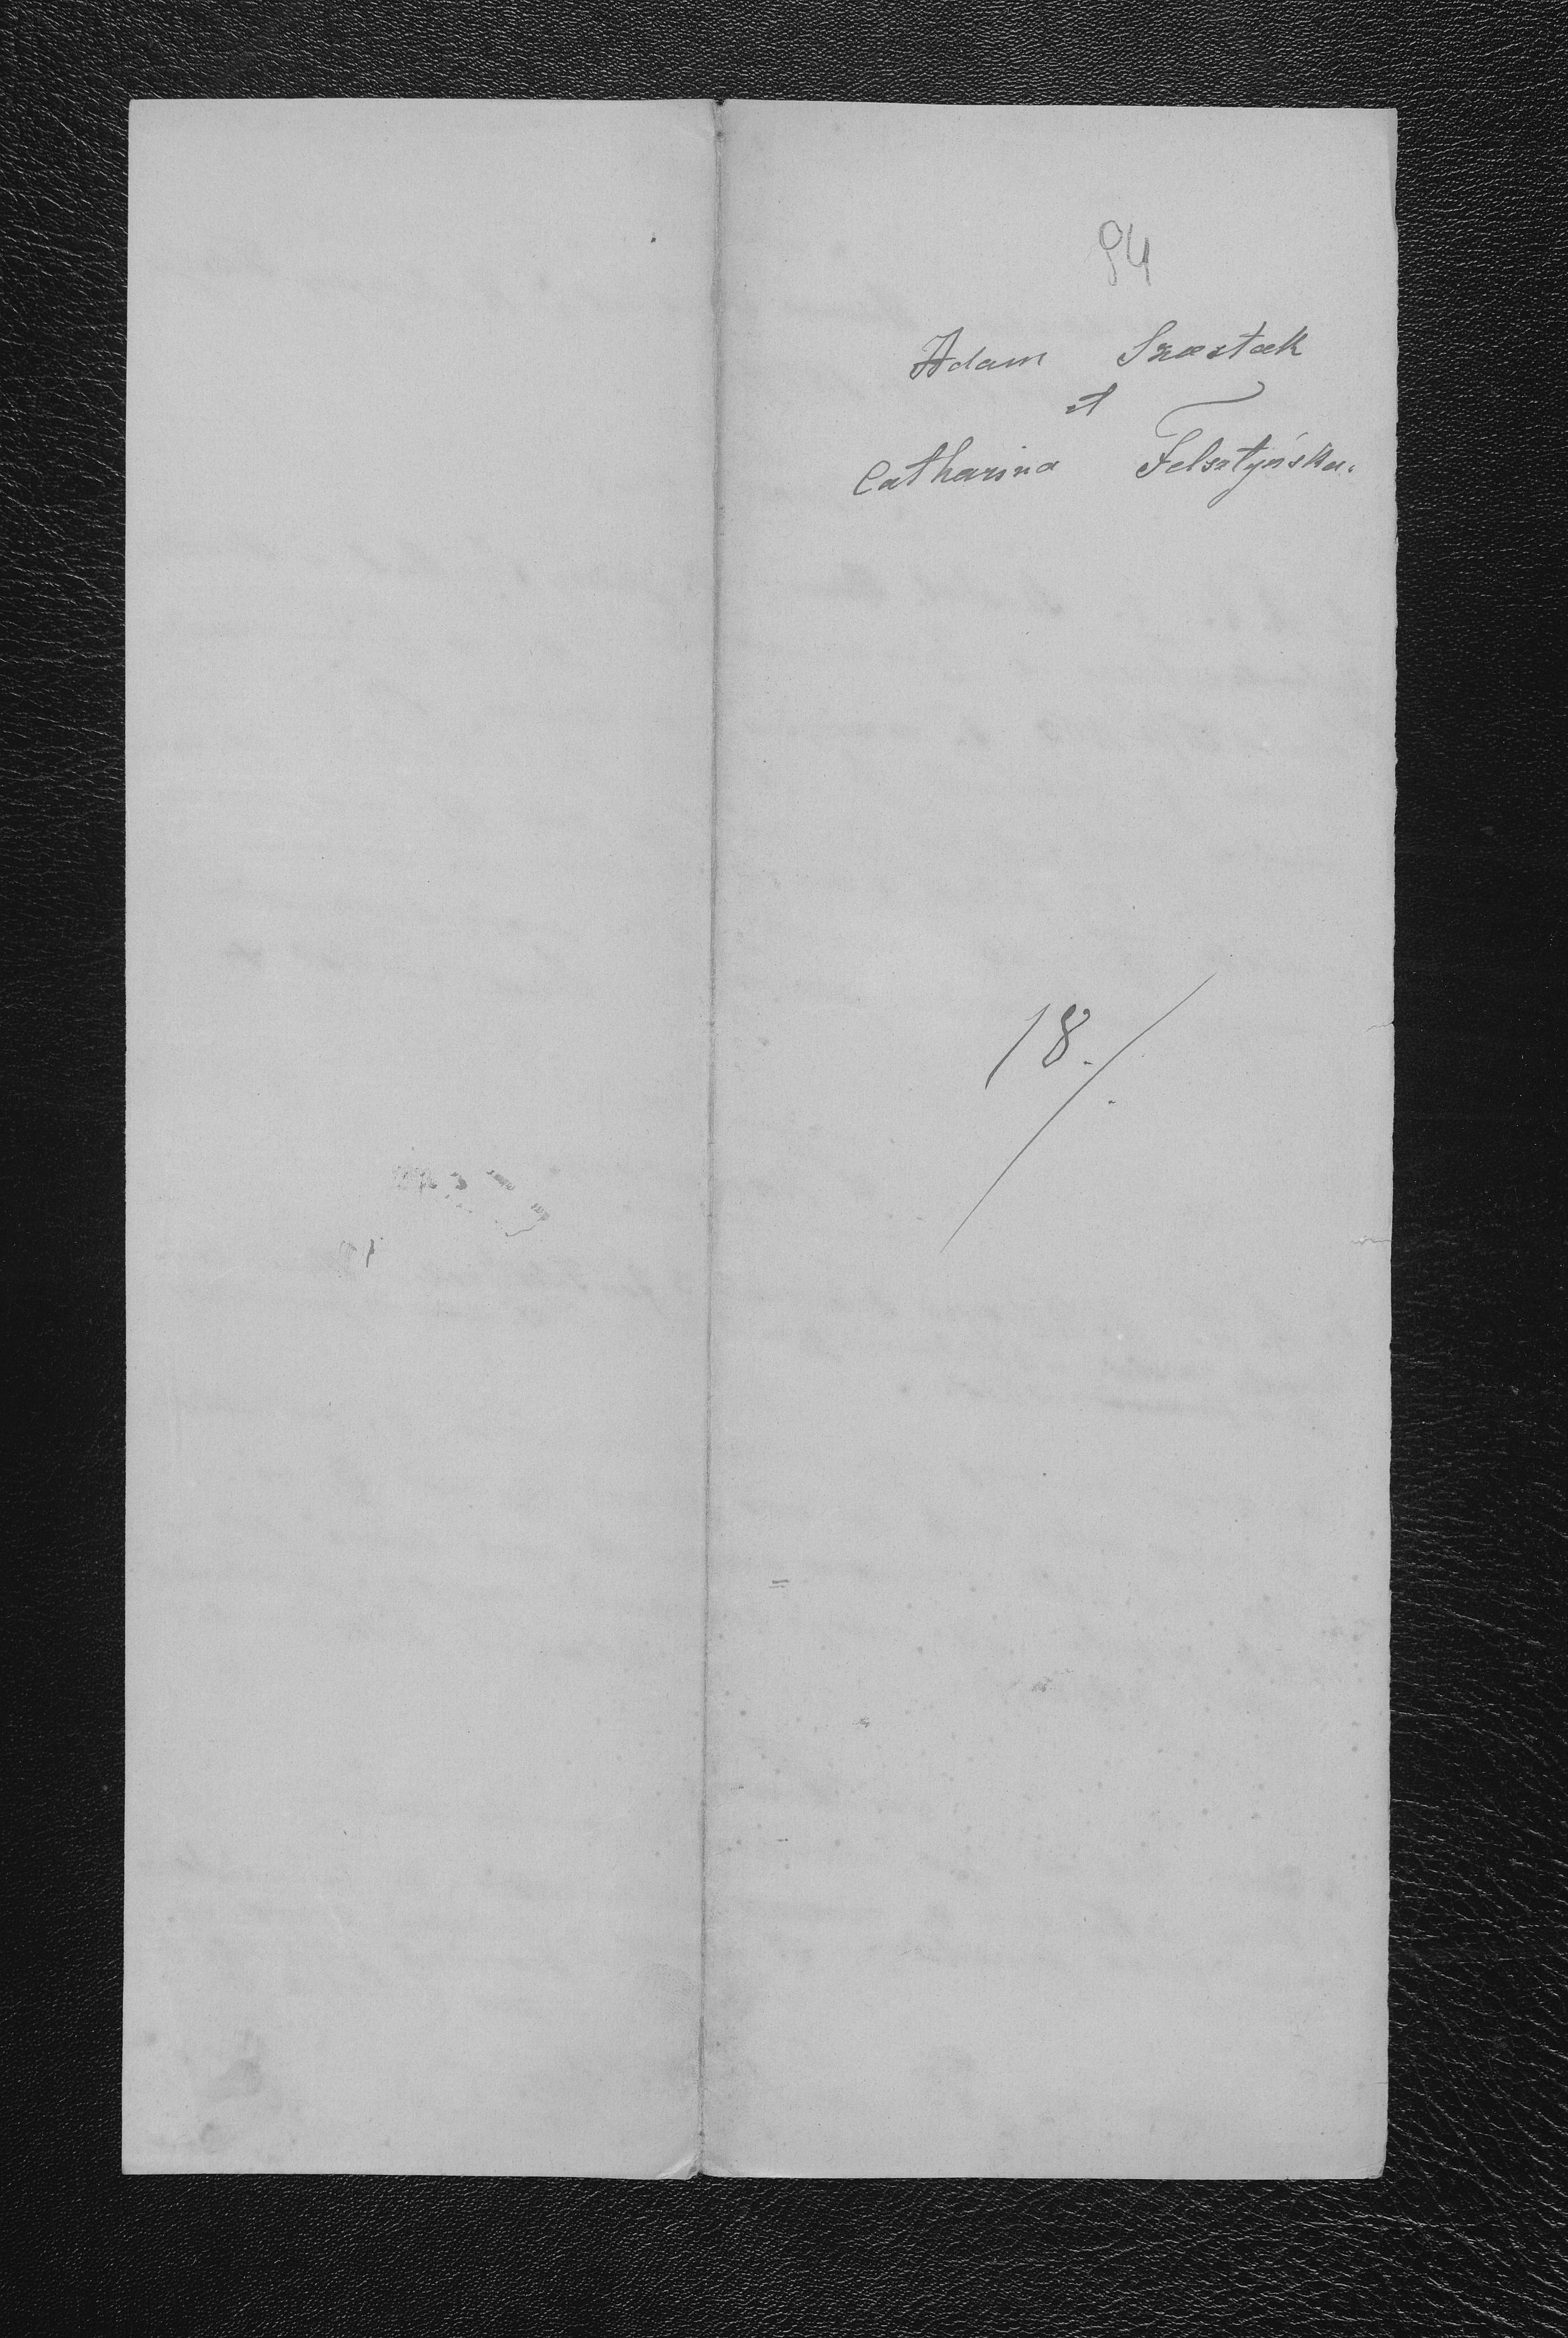 84
Adam Szostak
et
Catharina Felsztyńska.
18./.